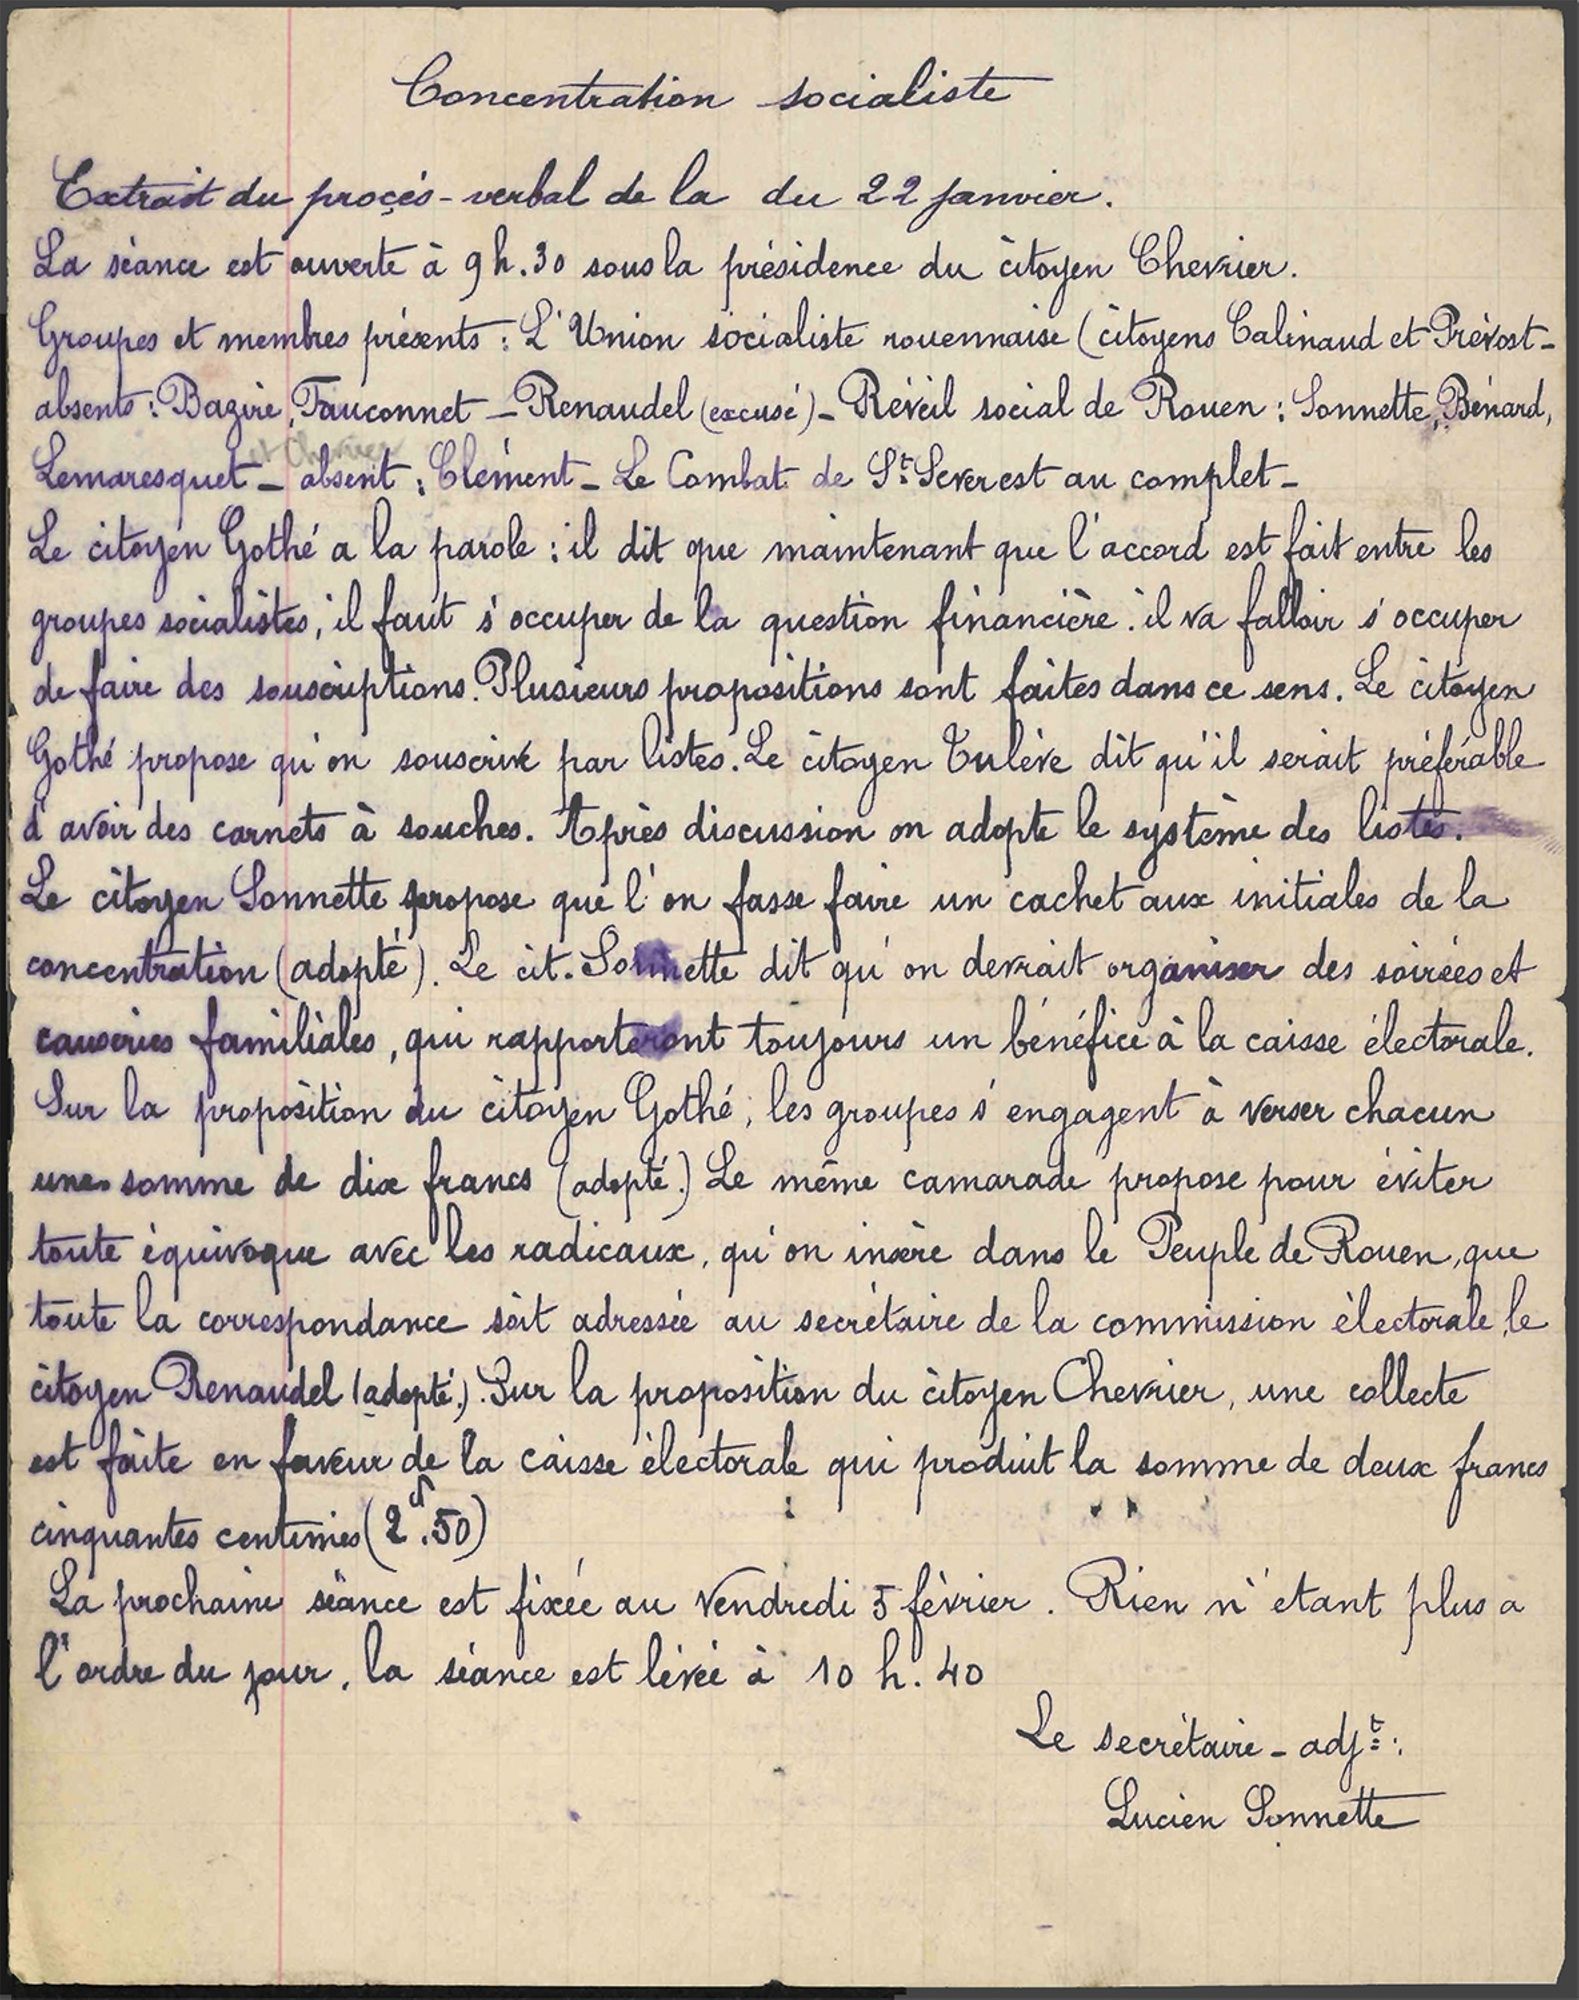 Concentration socialiste
Extrait du procès-verbal de la du 22 janvier.
La séance est ouverte à 9 h. 30 sous la présidence du citoyen Chevrier.
Groupes et membres présents : L'Union socialiste rouennaise (citoyens Calinaud et Prévost -
absents : Bazire, Fauconnet - Renaudel (excusé) - Réveil social de Rouen : Sonnette, Bénard,
et Chevrier
Lemaresquet - absent : Clément - Le Combat de St Sever est au complet -
Le citoyen Gothé a la parole : il dit que maintenant que l'accord est fait entre les
groupes socialistes, il faut s'occuper de la question financière : il va falloir s'occuper
de faire des souscriptions. Plusieurs propositions sont faites dans ce sens. Le citoyen
Gothé propose qu'on souscrive par listes. Le citoyen Tulève dit qu'il serait préférable
d'avoir des carnets à souches. Après discussion on adopte le système des listes.
Le citoyen Sonnette propose que l'on fasse faire un cachet aux initiales de la
concentration (adopté). Le cit. Sonnette dit qu'on devrait organiser des soirées et
causeries familiales, qui rapporteront toujours un bénéfice à la caisse électorale.
Sur la proposition du citoyen Gothé, les groupes s'engagent à verser chacun
une somme de dix francs (adopté.) Le même camarade propose pour éviter
toute équivoque avec les radicaux, qu'on insère dans le Peuple de Rouen, que
toute la correspondance soit adressée au secrétaire de la commission électorale, le
citoyen Renaudel (adopté.) Sur la proposition du citoyen Chevrier, une collecte
est faite en faveur de la caisse électorale qui produit la somme de deux francs
cinquantes centimes (2f.50)
La prochaine séance est fixée au Vendredi 5 février. Rien n'étant plus a
l'ordre du jour, la séance est levée à 10 h. 40
Le secrétaire-adjt :
Lucien Sonnette